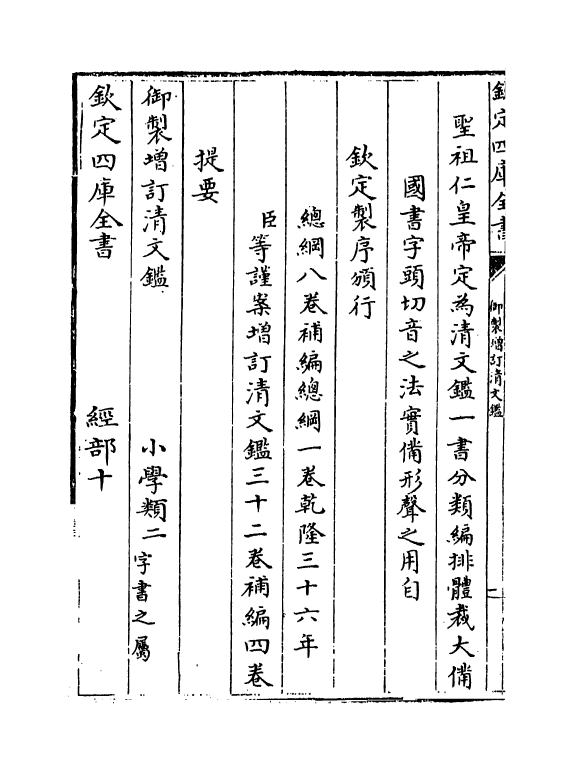 欽定四庫全書　經部十
御製增訂清文鑑　小學類二字書之屬
提要
臣等謹案增訂清文鑑三十二卷補編四卷
總綱八卷補編總綱一卷乾隆三十六年
欽定製序頒行
國書字頭切音之法實備形聲之用自
聖祖仁皇帝定為清文鑑一書分類編排體裁大備
欽定四庫全書
御製增訂清文鑑